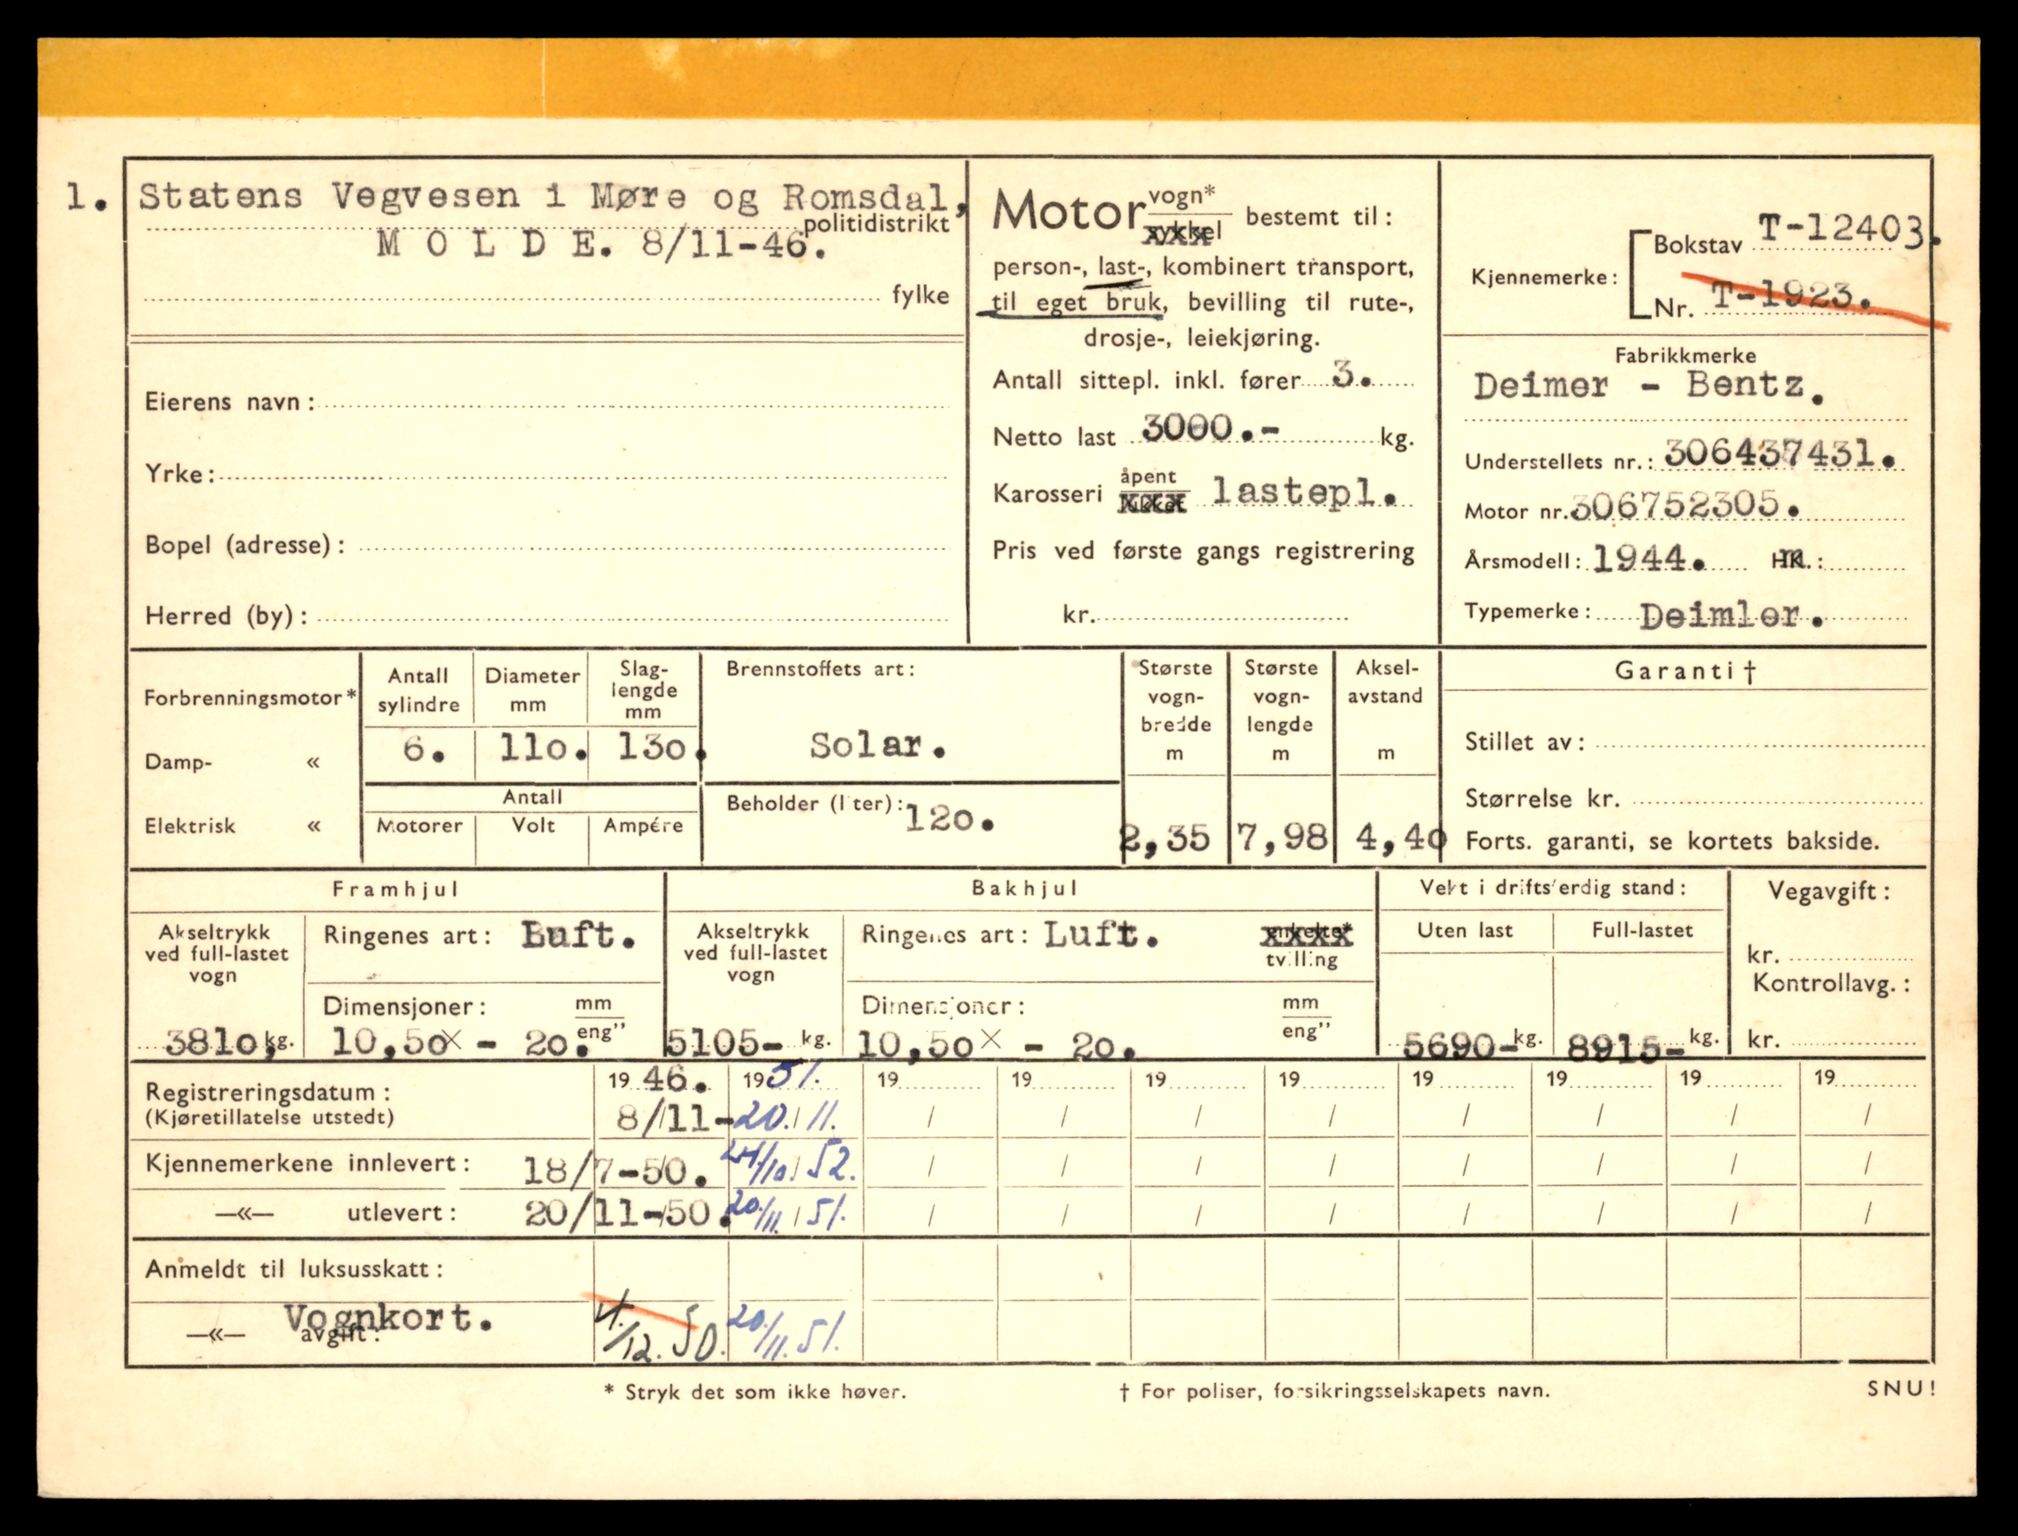 1. Statens Vegvesen i Møre og Romsdal,
politidistrikt
M O L D E. 8/11-46.
fylke
Eierens navn:
Yrke:
Bopel (adresse):
Herred (by):
Motor vogn* bestemt til:
sykkel
person-, last-, kombinert transport,
til eget bruk, bevilling til rute-,
drosje-, leiekjøring.
Antall sittepl. inkl. fører 3.
Netto last 3000.- kg.
Karosseri åpent lastepl.
lukket
Pris ved første gangs registrering
kr.
Kjennemerke: Bokstav T-12403.
Nr. T-1923.
Fabrikkmerke
Deimer - Bentz.
Understellets nr.: 306437431.
Motor nr. 306752305.
Årsmodell: 1944. HK.:
Typemerke: Deimler.
Forbrenningsmotor*
Damp- «
Elektrisk «
Antall sylindre
Diameter mm
Slag-lengde mm
6. 110. 130.
Antall
Motorer Volt Ampére
Brennstoffets art:
Solar.
Beholder (liter): 120.
Største vogn-bredde m
Største vogn-lengde m
Aksel-avstand m
2,35 7,98 4,40
Garanti †
Stillet av:
Størrelse kr.
Forts. garanti, se kortets bakside.
Framhjul
Akseltrykk ved full-lastet vogn
3810, kg.
Ringenes art: Luft.
Dimensjoner: mm
eng"
10,50 × - 20.
Bakhjul
Akseltrykk ved full-lastet vogn
5105- kg.
Ringenes art: Luft. enkelte*
tvilling
Dimensjoner: mm
eng"
10,50 × - 20.
Vekt i driftsferdig stand:
Uten last Full-lastet
5690- kg. 8915- kg.
Vegavgift:
kr.
Kontrollavg.:
kr.
Registreringsdatum: 19 46. 19 51. 19 19 19 19 19 19 19 19
(Kjøretillatelse utstedt) 8/11- 20./11. / / / / / / / /
Kjennemerkene innlevert: 18/7-50. 24/10. 52. / / / / / / / /
—«— utlevert: 20/11-50. 20./11. 51. / / / / / / / /
Anmeldt til luksusskatt:
Vognkort.
—«— avgift: 4./12. 50. 20./11. 51.
* Stryk det som ikke høver. † For poliser, forsikringsselskapets navn. SNU!